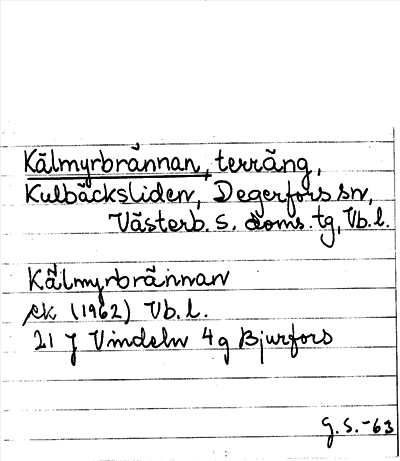 Kälmyrbrännan, terräng,
Kulbäcksliden, Degerfors sn,
Västerb. s. doms. tg, Vb. l.
Kälmyrbrännan
ek (1962) Vb. l.
21 J Vindeln 4g Bjurfors
G. S. -63